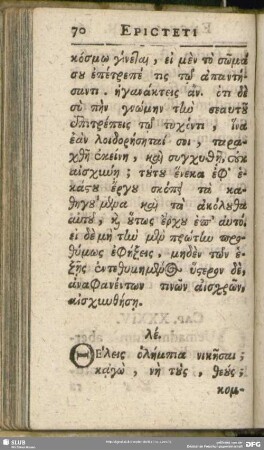 70 EPICTETI
κόσμῳ γίνεται, εἰ μὲν τὸ σῶμά
σου ἐπέτρεπέ τις τῷ ἀπαντή-
σαντι, ἠγανάκτεις ἄν. ὅτι δὲ
σὺ τὴν γνώμην τὴν σεαυτοῦ
ἐπιτρέπεις τῷ τυχόντι, ἵνα
ἐὰν λοιδορήσηταί σοι, ταρα-
χθῇ ἐκείνη, καὶ συγχυθῇ, οὐκ
αἰσχύνῃ; τούτου ἕνεκα ἐφ' ἑ-
κάστου ἔργου σκόπει τὰ κα-
θηγούμενα καὶ τὰ ἀκόλουθα
αὐτοῦ, κ οὕτως ἔρχου ἐπ' αὐτό.
εἰ δὲ μὴ τὴν μὲν πρώτην προ-
θύμως ἐφήξεις, μηδὲν τῶν ἐ-
ξῆς ἐντεθυμημένος ὕστερον δὲ,
ἀναφανέντων τινῶν αἰσχρῶν,
αἰσχυνθήσῃ.
λέ.
Θέλεις ὀλύμπια νικῆσαι;
κἀγὼ, νὴ τοὺς θεούς;
κομ-